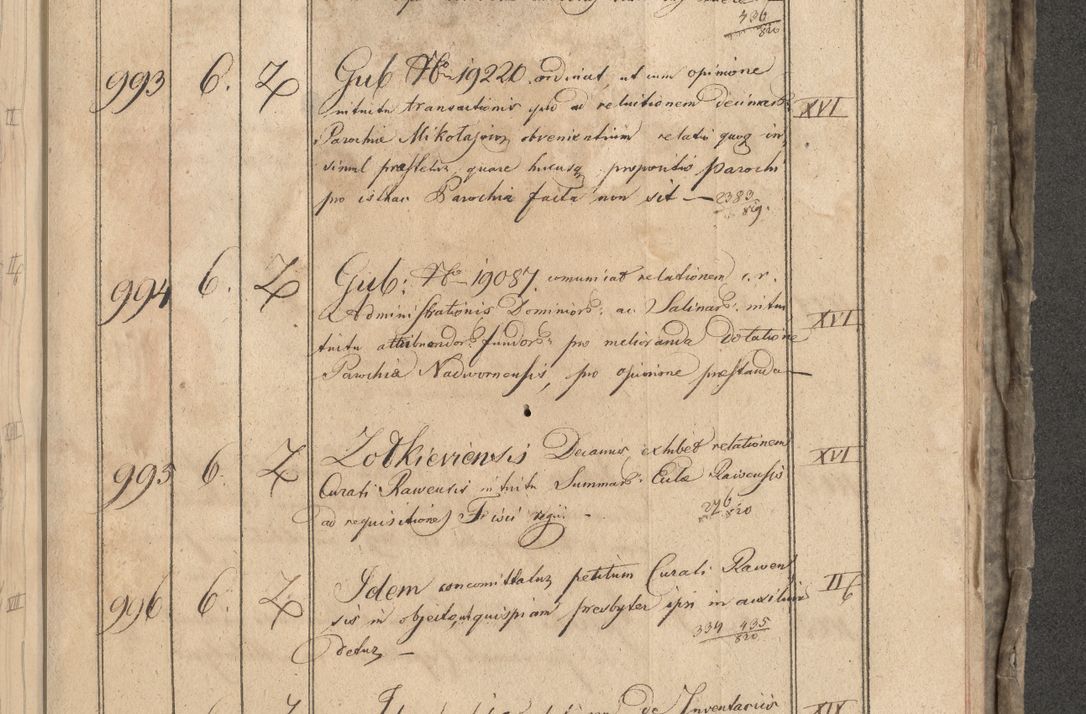 436
820
993 6. Z Gub No 19220 ordinat, ut cum opinione
intuitu transactionis quo ad reluitionem decimar: XVI
Parochiæ Mikołajow obvenientium relatio quoq in,
simul præstetur, quare hucusq propositio Parochi
pro isthac Parochia facta non sit — 2383
819.
994 6. Z Gub: No 19087. comunicat relationem c. r.
Administrationis Dominior: ac Salinar: intui XVI
tuitu attribuendor: fundor: pro melioranda dotatione
Parochiæ Nadwornensis, pro opinione præstanda —
995 6 Z Żołkieviensis Decanus exhibet relationem XVI
Curati Rawensis intuitu Summar: Eccłæ Rawensis
ad requisitionem Fisci regii. - 276
820
996 6. Z Idem concomittatur petitum Curati Rawen, II f
sis in objecto, ut quispiam presbyter ipsi in auxilium
detur, — 334 435
820
Inventariis XIV